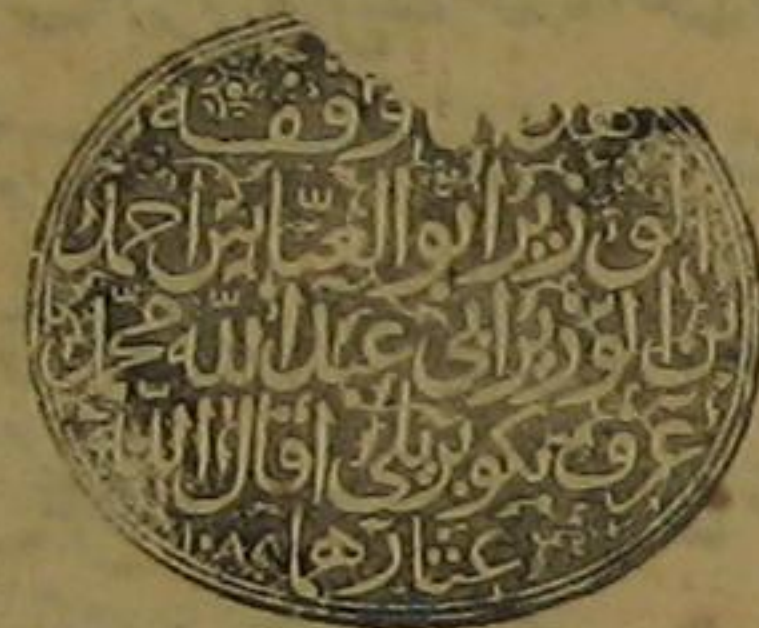 هذا وقفه
الوزير ابو العباس احمد
بن الوزير ابي عبد الله محمد
عرف بكوبريلي اقال الله
عثارهما ١٠٨٨